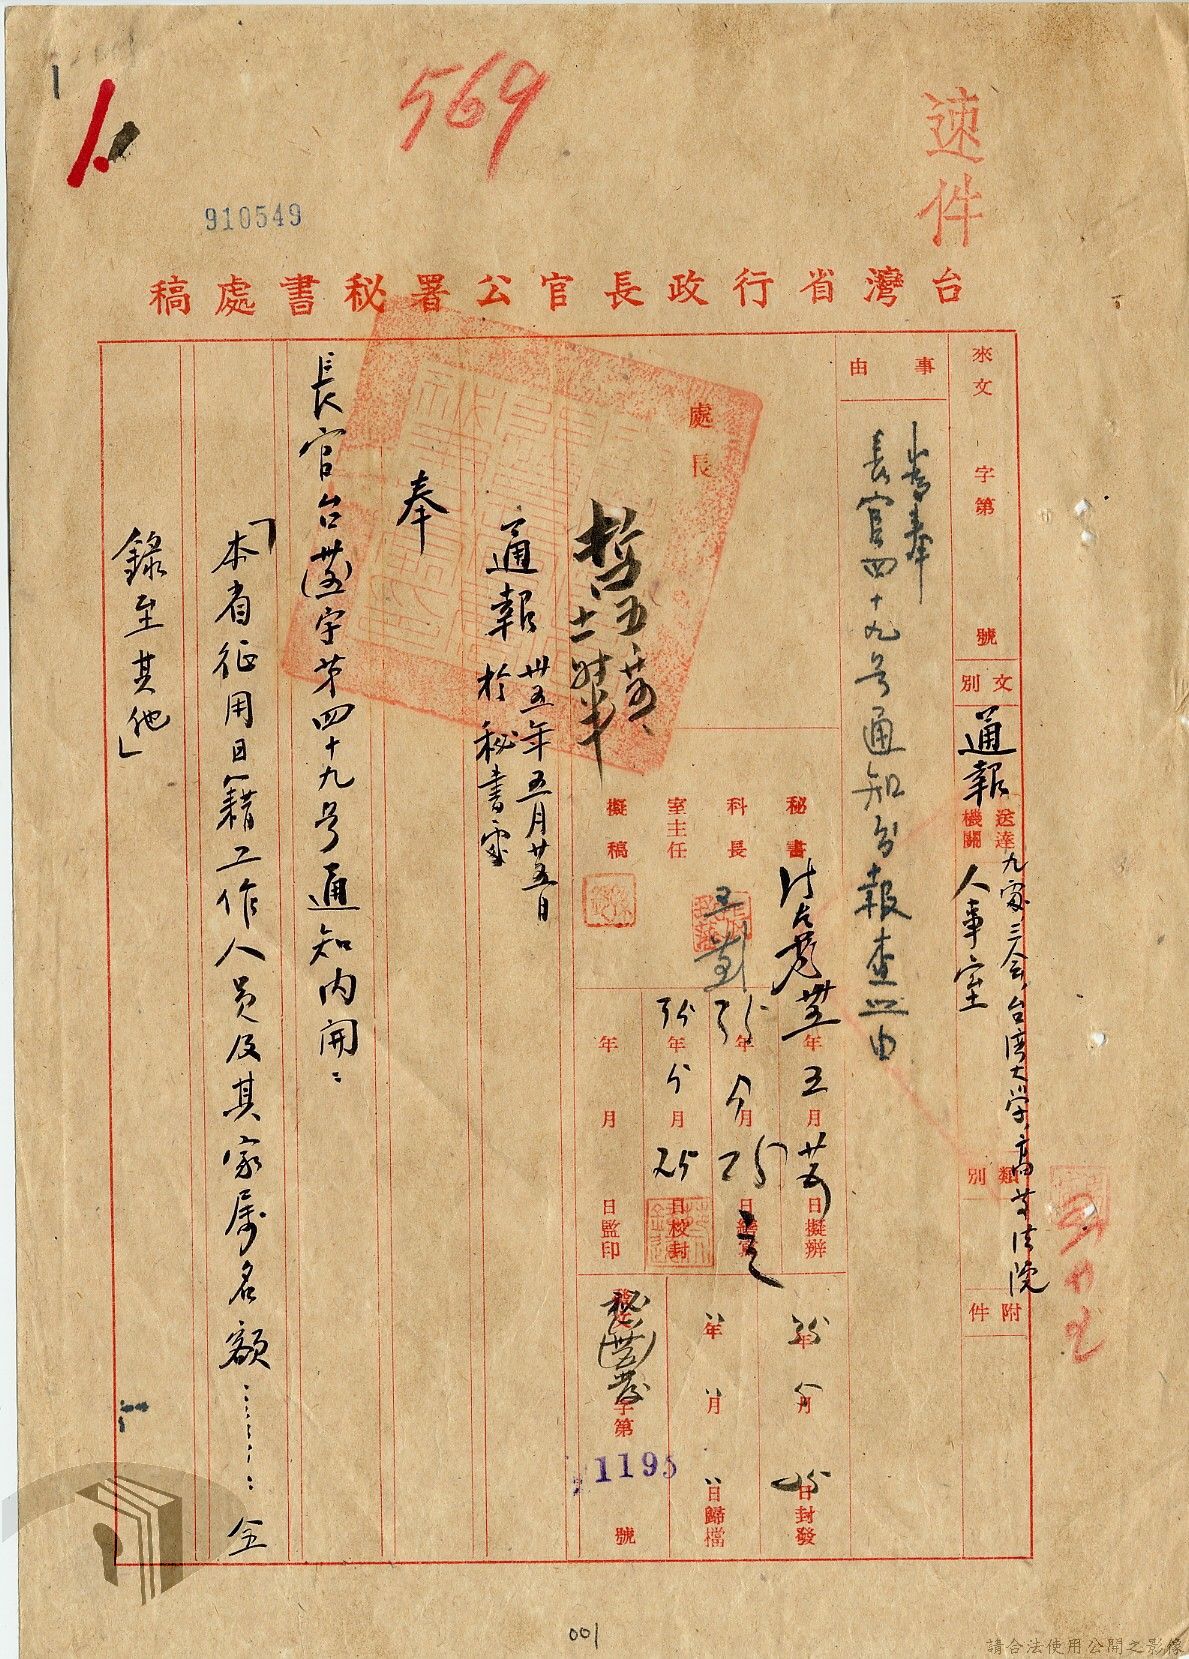 569
910549
速件
台灣省行政長官公署秘書處稿
來文 字第 號
文別
通報
送達機關
九處三会,台湾大学,高等法院
人事室
類別
附件
事由
為奉
長官四十九号通知
報查照由
處長
五
十一時半
秘書
科長
室主任
擬稿
卅五年五月廿五日擬辦
35年5月25日繕寫
35年5月25日校封
年 月 日監印
35年5月25日封發
年 月 日歸檔
秘(卅五)發字第1195號
通報 卅五年五月廿五日
於秘書室
奉
長官台(卅五)字第四十九号通知内開:
「本省征用日籍工作人员及其家属名額………全
錄至其他」
001
請合法使用公開之影像